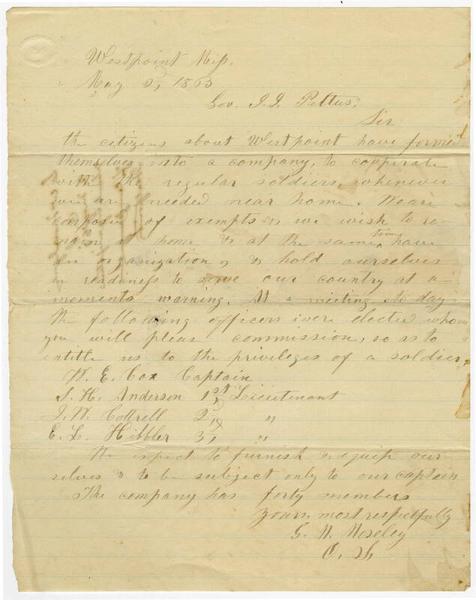 Westpoint Mip.
May 2, 1863
Gov. J. J. Pettus,
Sir
the citizens about Westpoint have formed
themselves into a company, to cooperate
with the regular soldiers, whenever
we are needed near home. We are
composed of exempts & we wish to re-
main at home & at the same time have
an organization & hold ourselves
in readiness to serve our country at a
moments warning. At a meeting to day
the following officers were elected whom
you will pleas commission, so as to
entitle us to the privileges of a soldier,
W. E. Cox Captain
S. H. Anderson 1st Lieutenant
J. W. Cottrell 2nd "
E. L. Hibbler 3rd "
We expect to furnish & equip our
selves & to be subject only to our captain
The company has forty members
yours most respectfully
G. W. Moseley
O. S.